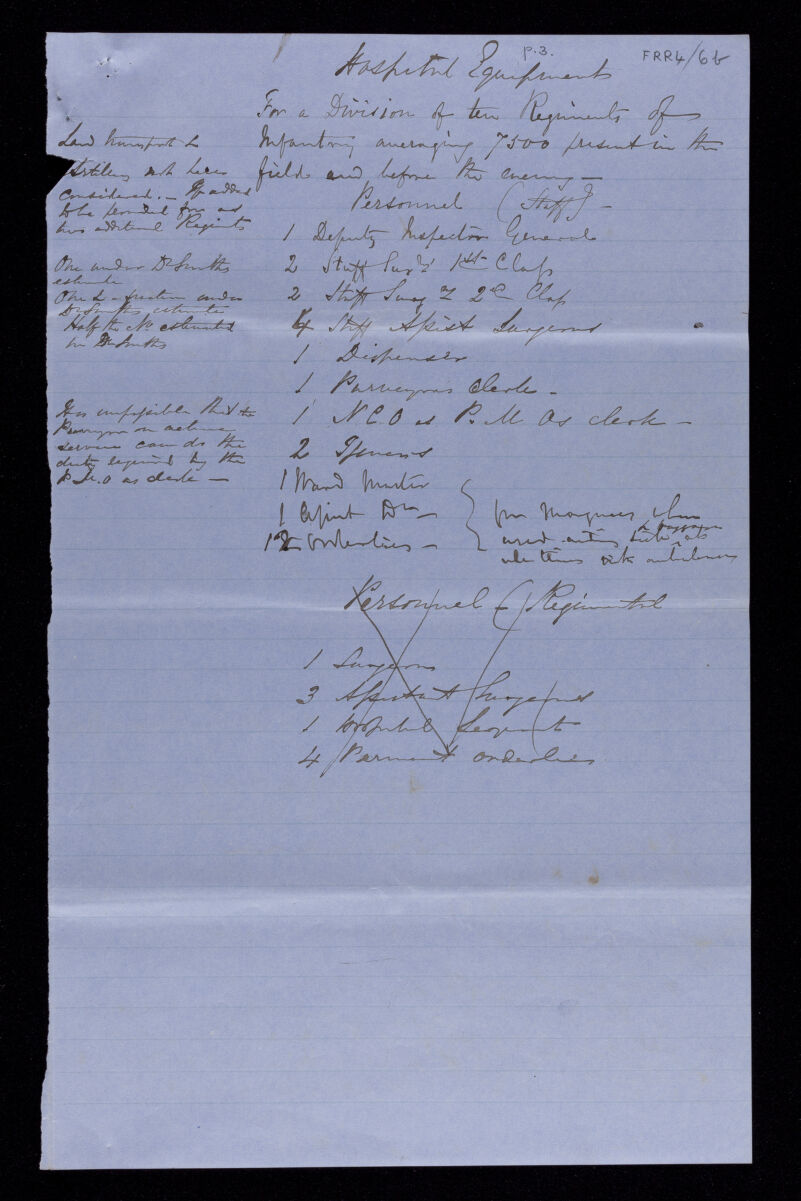 p.3.
FRR4/6b
Hospital Equipment
For a Division of ten Regiments of
Infantry averaging 7500 present in the
field and before the enemy —
Personnel (Staff) —
1 Deputy Inspector General
2 Staff Surgs 1st Class
2 Staff Surgs 2nd Class
4 Staff Assist Surgeons
1 Dispenser
1 Purveyors Clerk —
1 N.C.O as P.M.O's clerk —
2
1 Ward Master
1 Assist Do —
12 Orderlies —
for Marquees when
used
Personnel (Regimental
1 Surgeon
3 Assistant Surgeons
1 Hospital Sergeant
4 Permant orderlies
Land transport &
Artillery not been
considered. — If added
to be provided for as
two additional Regients
One under Dr Smiths
estimate
One &  fraction under
Dr Smiths estimate
Half the No estimated
in Dr Smiths
It is impossible that the
Purveyor on active
service can do the
duty required by the
P.M.O as clerk —